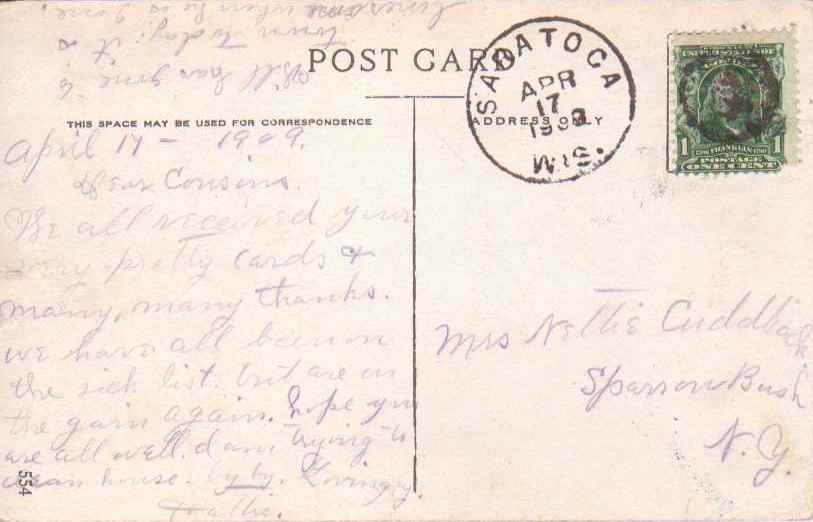 POST CARD
THIS SPACE MAY BE USED FOR CORRESPONDENCE
ADDRESS ONLY
SARATOGA
APR
17
1909
WIS.
UNITED STATES OF
FRANKLIN
1 1
POSTAGE
ONE CENT
April 17 - 1909.
Dear Cousins.
We all received your
very pretty cards &
many, many thanks.
we have all been on
the sick list. but are on
the gain again. hope you
are all well. I am trying to
clean house. by by. Lovingly
Hattie.
Will has gone to
town today. it is
lonesome when he is gone.
Mrs Nellie Cuddback
Sparrow Bush
N.Y.
554